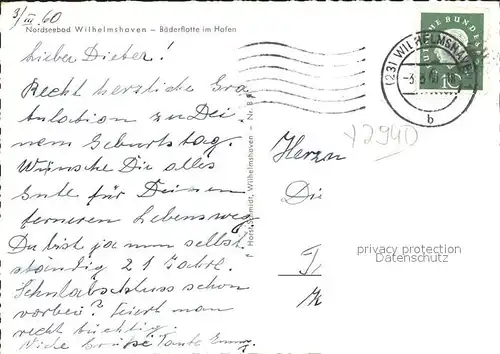 3/III.60
Nordseebad Wilhelmshaven – Bäderflotte im Hafen
Lieber Dieter!
Recht herzliche Gra
tulation zu Dei
nem Geburtstag.
Wünsche Dir alles
Gute für Deinen
ferneren Lebensweg
Du bist ja nun selbst
ständig 21 Jahre.
Schulabschluss schon
vorbei? Feiert man
recht tüchtig.
Viele Grüße Tante Emmy.
Horst Schmidt, Wilhelmshaven – Nr. 8
(23) WILHELMSHAVEN
-3.3.60
b
10
Y2940
Herrn
Die
privacy protection
Datenschutz